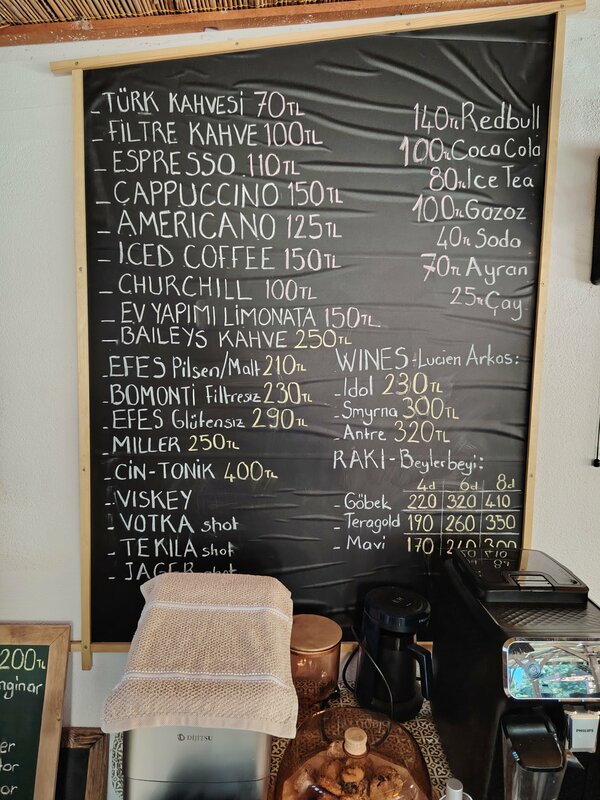 _TÜRK KAHVESİ 70TL
_FİLTRE KAHVE 100TL
_ESPRESSO 110TL
_CAPPUCCINO 150TL
_AMERICANO 125TL
_ICED COFFEE 150TL
_CHURCHILL 100TL
_EV YAPIMI LİMONATA 150TL
_BAILEYS KAHVE 250TL
_EFES Pilsen/Malt 210TL
_BOMONTİ Filtresiz 230TL
_EFES Glütensiz 290TL
_MILLER 250TL
_CİN-TONİK 400TL
_VISKEY
_VOTKA shot
_TEKİLA shot
_JAGER shot
140TL Redbull
100TL Coca Cola
80TL Ice Tea
100TL Gazoz
40TL Soda
70TL Ayran
25TL Çay
WINES-Lucien Arkas:
_Idol 230TL
_Smyrna 300TL
_Antre 320TL
RAKI-Beylerbeyi:
4d 6d 8d
_Göbek 220 320 410
_Teragold 190 260 350
_Mavi 170 240 300
200TL
nginar
DIJITSU
PHILIPS